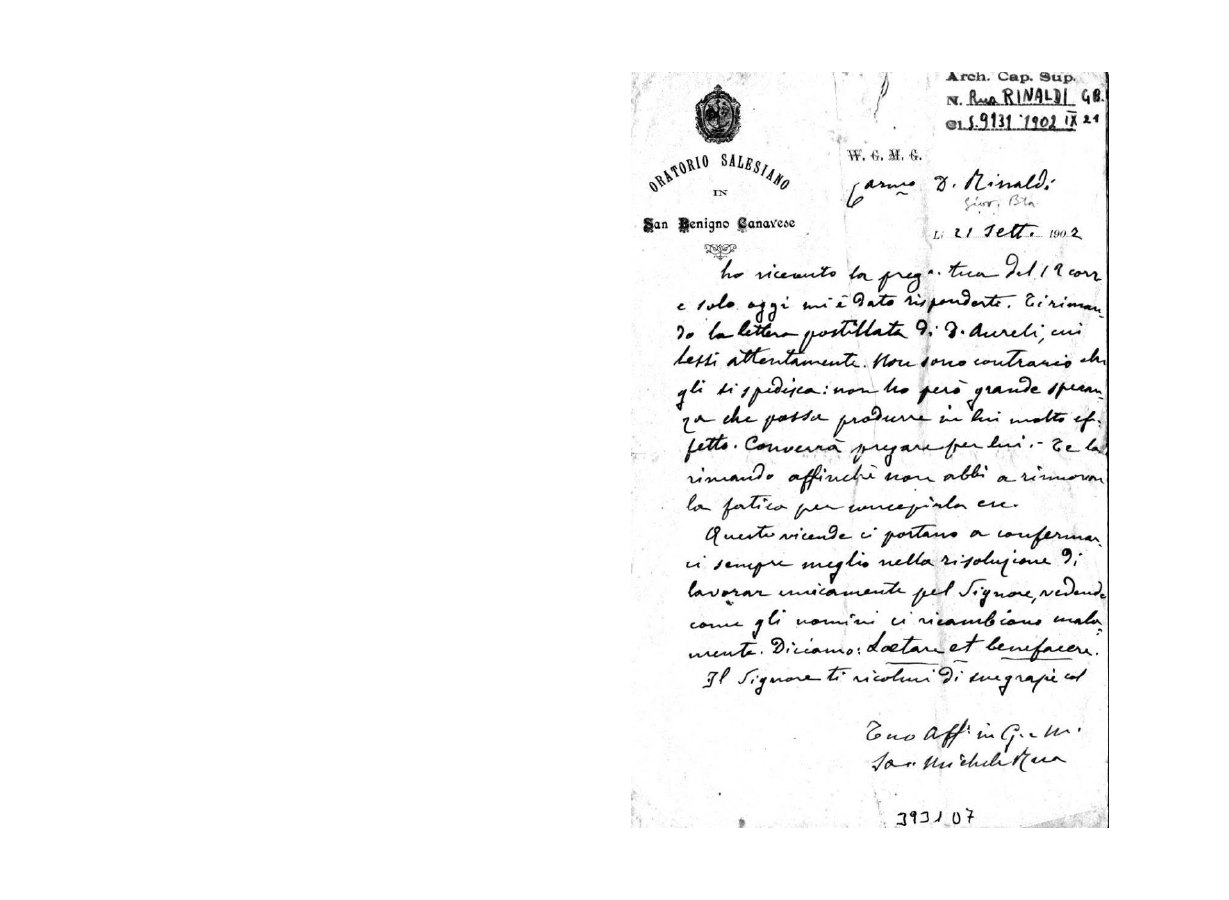 Arch. Cap. Sup.
N. Rua RINALDI GB.
Cl. S.9131 1902 IX 21
ORATORIO SALESIANO
IN
San Benigno Canavese
W. G. M. G.
Carmo D. Rinaldi
Giov. Bta
Li 21 Sett. 1902
ho ricevuto la preg.a tua del 12 corr
e solo oggi mi è dato risponderte. Ti riman-
do la lettera postillata di D. Aureli, cui
lessi attentamente. Non sono contrario che
gli si spedisca: non ho però grande speran-
za che possa produrre in lui molto ef-
fetto. Converrà pregare per lui. - Te la
rimando affinchè non abbi a rinnovar
la fatica per concepirla ecc.
Queste vicende ci portano a confermar-
ci sempre meglio nella risoluzione di
lavorar unicamente pel Signore, vedendo
come gli uomini ci ricambiano mala-
mente. Diciamo: Laetare et benefacere.
Il Signore ti ricolmi di sue grazie col
Tuo Aff. in G. e M.
Sac. Michele Rua
3931 07